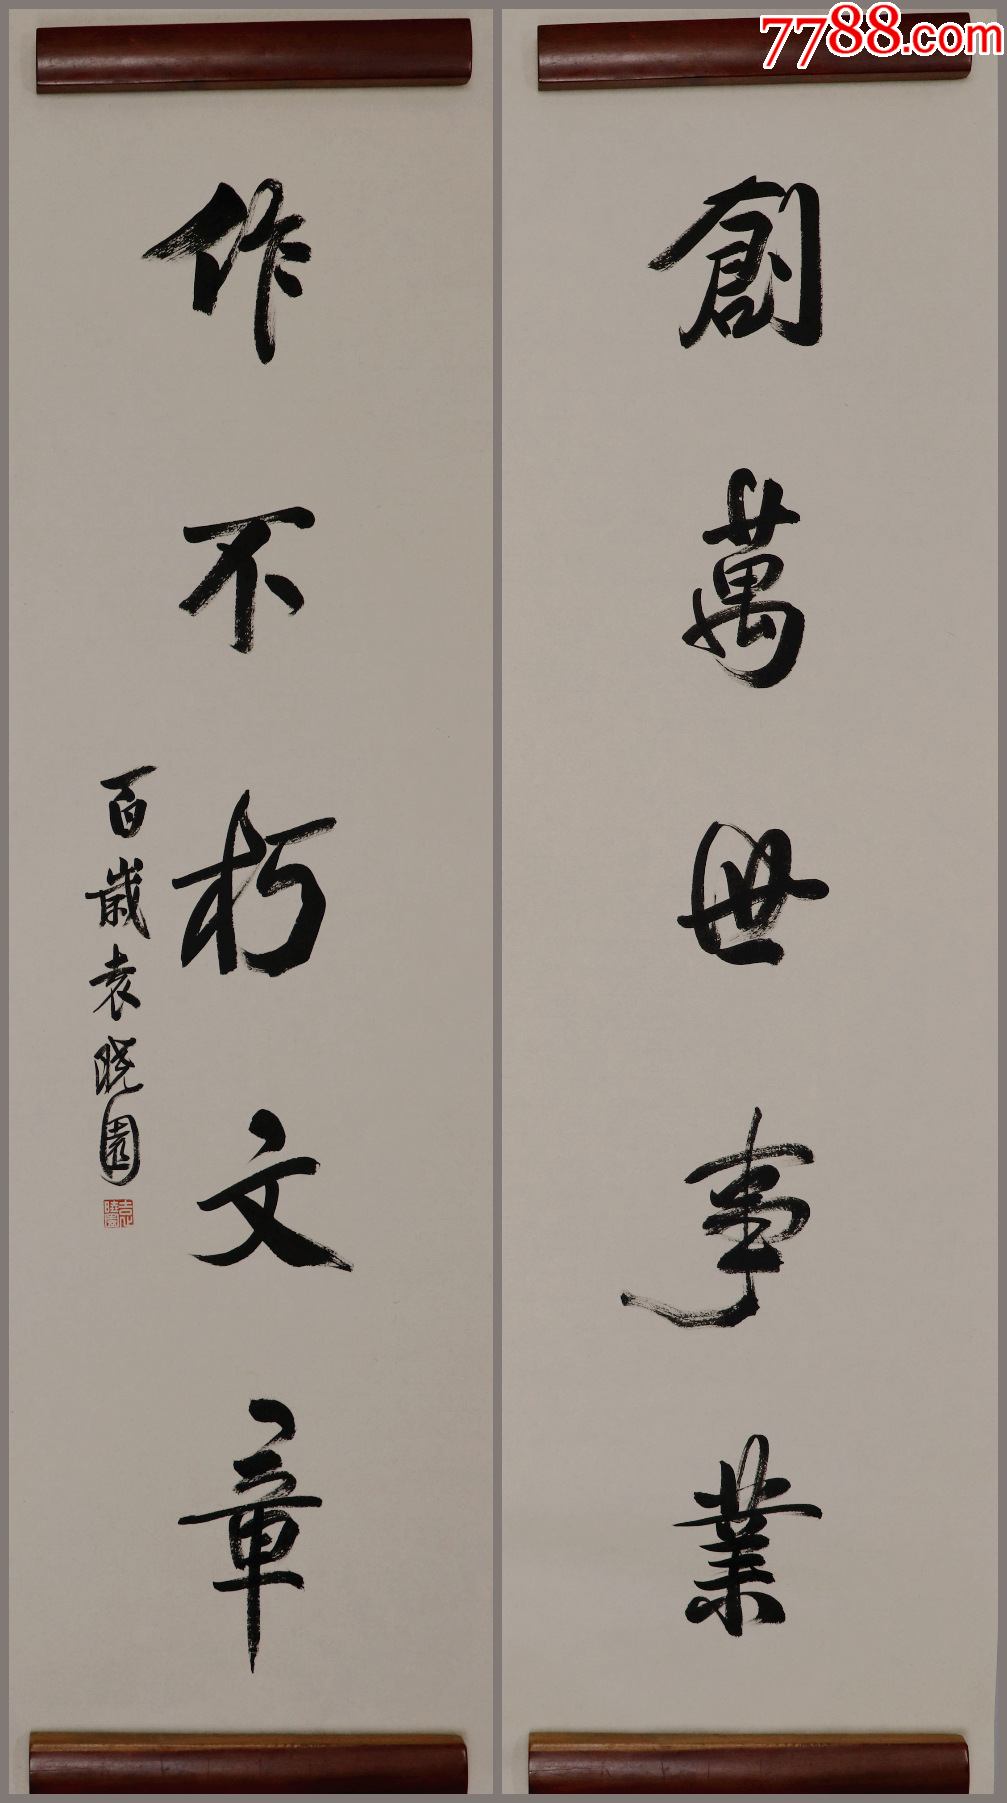 7788.com
創萬世事業
作不朽文章
百歲袁晓園
袁曉園